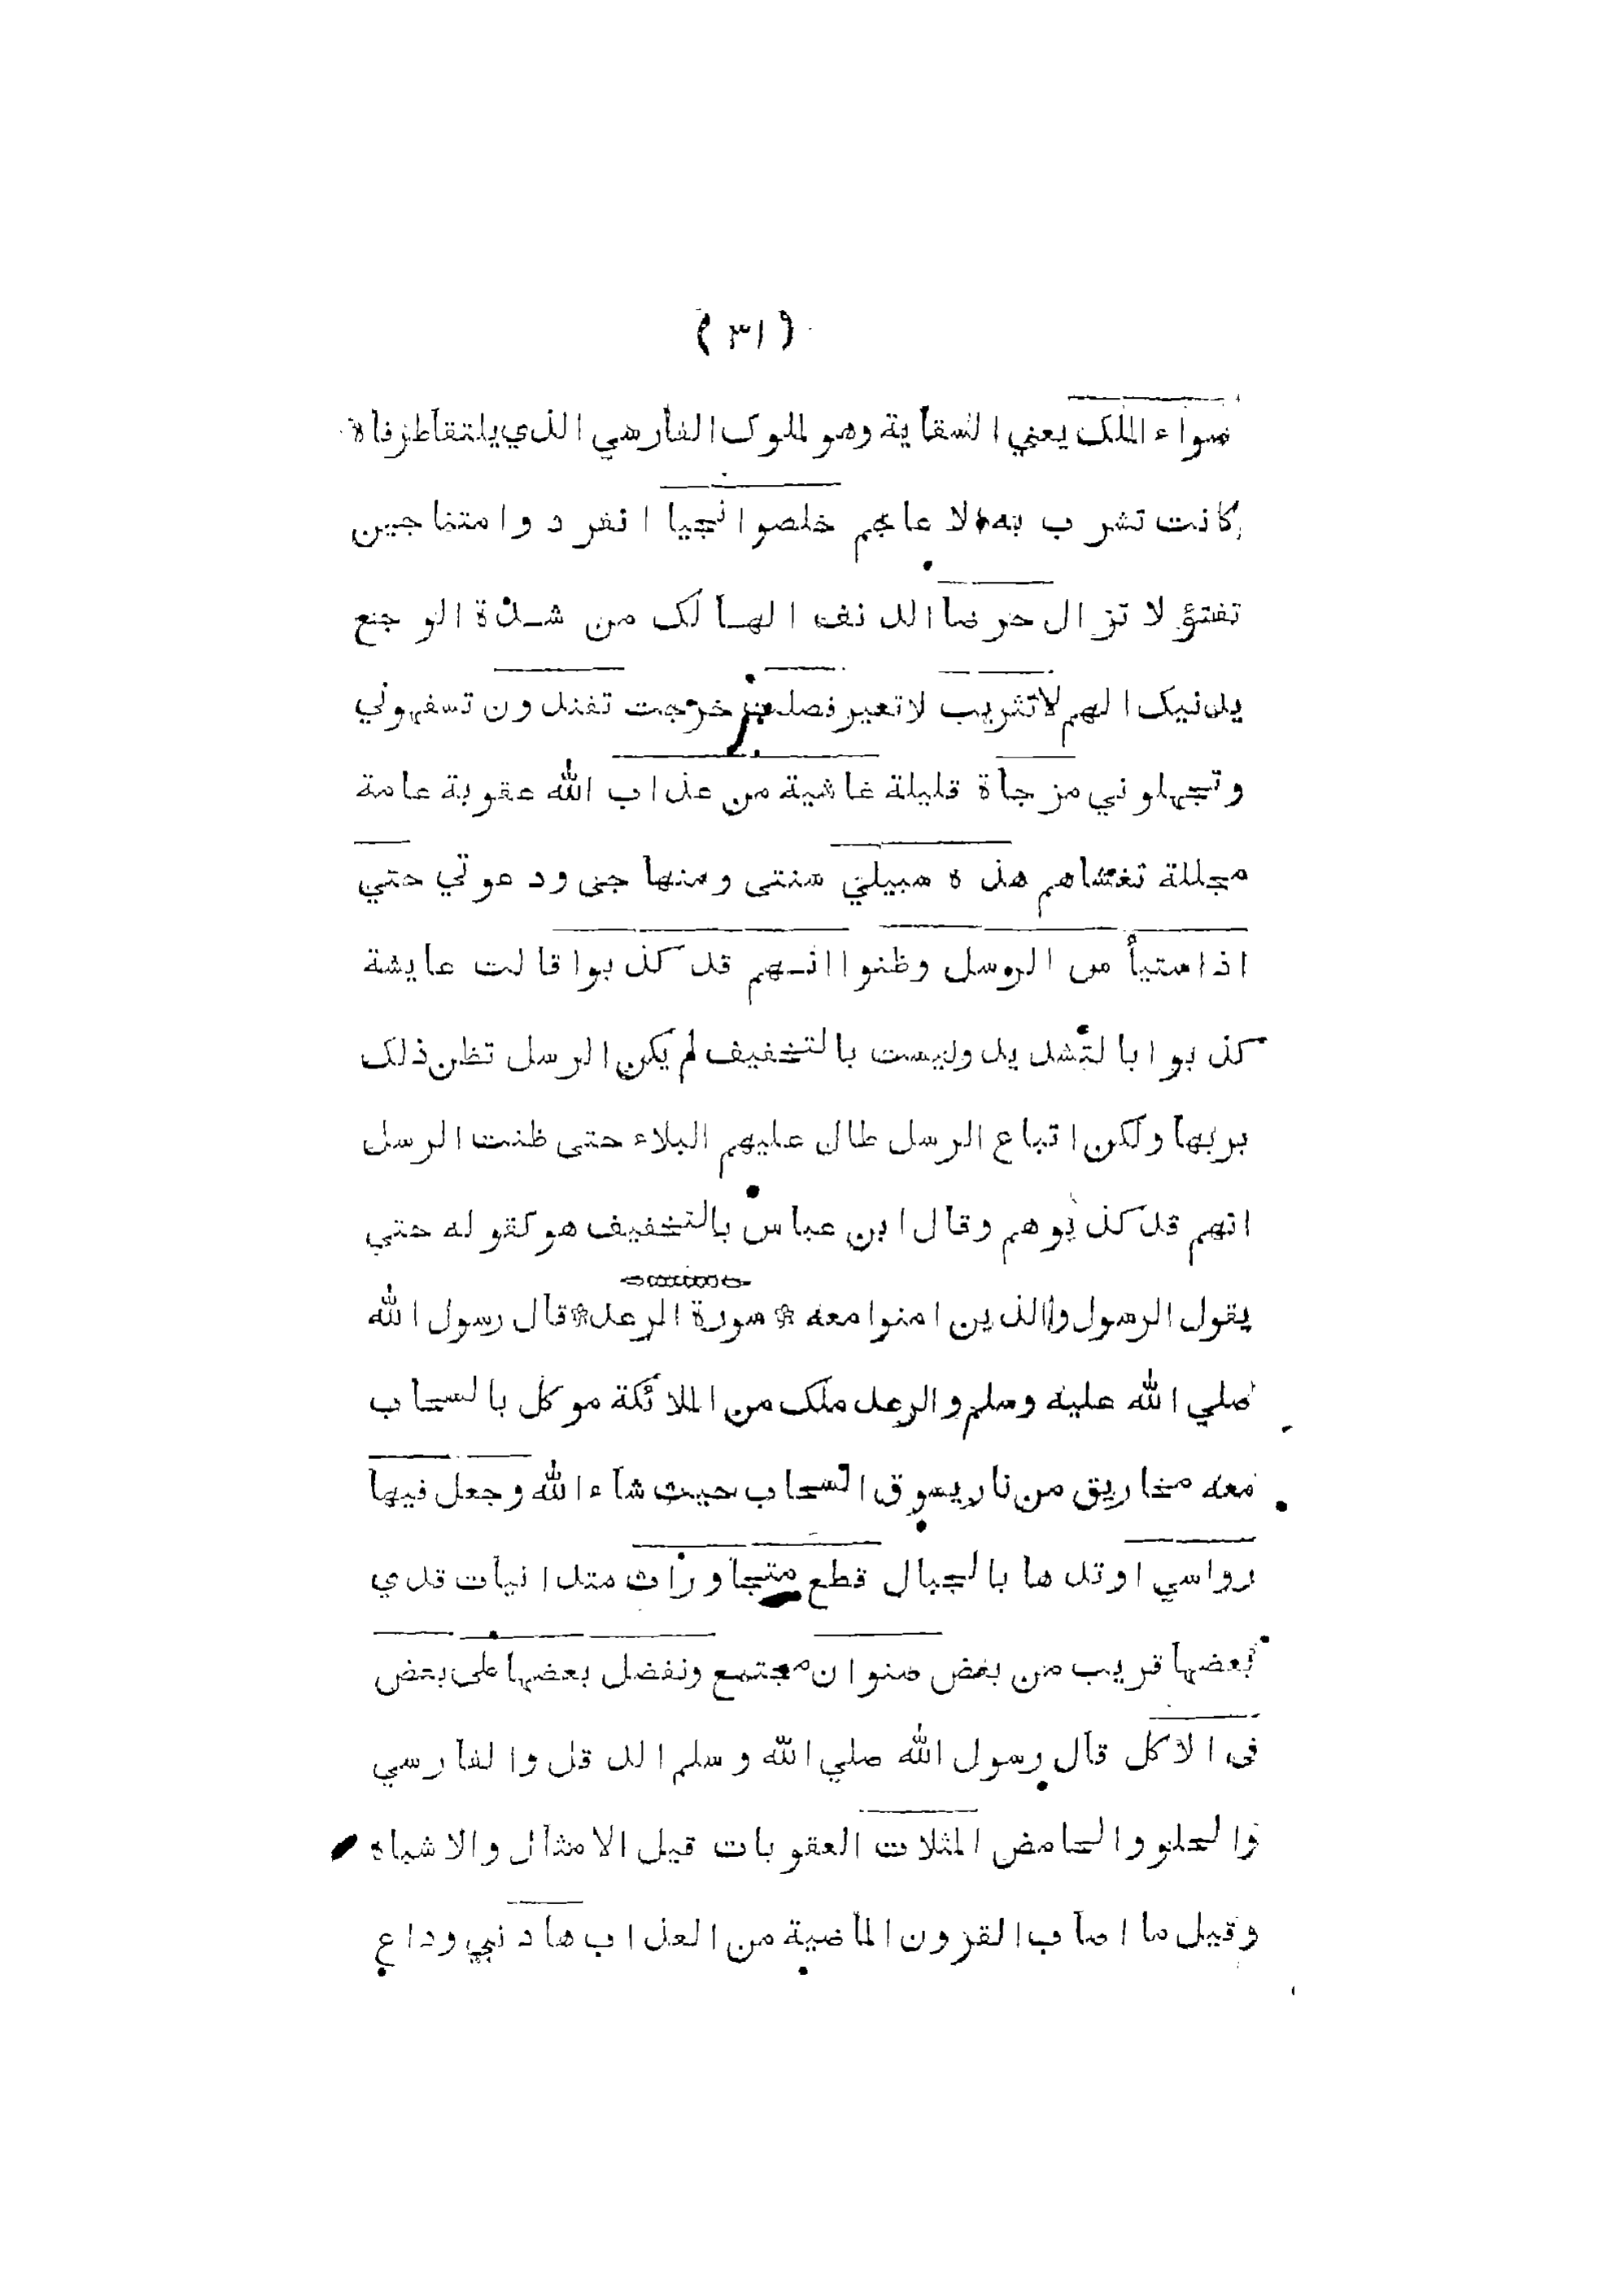 (٣١)
صواء الملك يعني السقاية وهو لملوك الفارسي الذي يلتقا طرفاه
كانت تشرب به الاعاجم خلصوا نجيا انفردوا متناجين
تفتؤ لا تزال حرضا الدنف الهالك من شدة الوجع
يدنيك الهم لا تثريب لا تعير فصلت خرجت تفندون تسفهوني
وتجهلوني مزجاة قليلة غاشية من عذاب الله عقوبة عامة
مجللة تغشاهم هذه سبيلي سنتى ومنهاجى ودعوتي حتي
اذا استيأس الرسل وظنوا انهم قد كذبوا قالت عايشة
كذبوا بالتشديد وليست بالتخفيف لم يكن الرسل تظن ذلك
بربها ولكن اتباع الرسل طال عليهم البلاء حتى ظنت الرسل
انهم قد كذبوهم وقال ابن عباس بالتخفيف هو كقوله حتي
يقول الرسول والذين امنوا معه * سورة الرعد * قال رسول الله
صلي الله عليه وسلم والرعد ملك من الملائكة موكل بالسحاب
معه مخاريق من نار يسوق السحاب حيث شاء الله وجعل فيها
رواسي اوتدها بالجبال قطع متجاورات متدانيات قدي
بعضها قريب من بعض صنوان مجتمع ونفضل بعضها على بعض
فى الاكل قال رسول الله صلي الله وسلم الدقل والفارسي
والحلو والحامض المثلات العقوبات قيل الامثال والاشباه
وقيل ما اصاب القرون الماضية من العذاب هاد نبي وداع